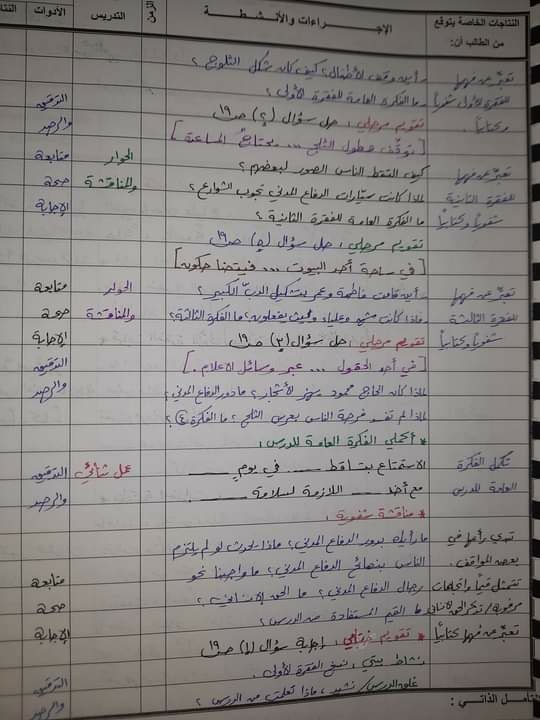 النتاجات الخاصة يتوقع من الطالب أن: الإجراءات والأنشطة الزمن التدريس الأدوات
تعبر عن فهمها أين وقف الأطفال؟ كيف كان شكل الثلوج؟
للفقرة الأولى شفوياً ما الفكرة العامة للفقرة الأولى؟ التدقيق
وكتابياً. تقويم مرحلي: حل سؤال (٢) ص١٩ والرصد
[توقف هطول الثلج ... يحتاج المساعدة]
تعبر عن فهمها كيف التقط الناس الصور لبعضهم؟ الحوار متابعة
للفقرة الثانية لماذا كانت سيارات الدفاع المدني تجوب الشوارع؟ والمناقشة صحة
شفوياً وكتابياً ما الفكرة العامة للفقرة الثانية؟ الإجابة
تقويم مرحلي: حل سؤال (٥) ص١٩
[في ساحة أحد البيوت ... فبيتضا حكونه]
تعبر عن فهمها أين قامت فاطمة وعمر بتشكيل الدب الكبير؟ الحوار متابعة
للفقرة الثالثة وماذا كانت وعلياء وكيف يفعلونه؟ ما الفكرة الثالثة؟ والمناقشة صحة
شفوياً وكتابياً تقويم مرحلي: حل سؤال (٣) ص١٩ الإجابة
[في أحد الحقول ... عبر وسائل الإعلام.] التدقيق
لماذا كان الحاج محمود يهز الأشجار؟ ما دور الدفاع المدني؟ والرصد
لماذا لم تفسد فرحة الناس بعرس الثلج؟ ما الفكرة ④؟
* أكملي الفكرة العامة للدرس:
تكمل الفكرة الاستمتاع بتساقط ــــــ في يومٍ ــــــ عمل ثنائي التدقيق
العامة للدرس مع أخذ ــــــ اللازمة لسلامة ــــــ. والرصد
* مناقشة شفوية:
تبدي رأيها في ما رأيك بدور الدفاع المدني؟ ماذا يحدث لو لم يلتزم
بعض المواقف. الناس بنصائح الدفاع المدني؟ ما واجبنا نحو
تتمثل قيماً واتجاهات رجال الدفاع المدني؟ ما الحق الإنساني؟ متابعة
مرغوبة/ تذكر الحق الإنساني ما القيم المستفادة من الدرس؟ صحة
تعبر عن فهمها كتابياً * تقويم ختامي: إجابة سؤال (١) ص١٩ الإجابة
نشاط بيتي: نسخ الفقرة الأولى. التدقيق
غلق الدرس/ نشيد، ماذا تعلمت من الدرس؟ والرصد
التأمل الذاتي: